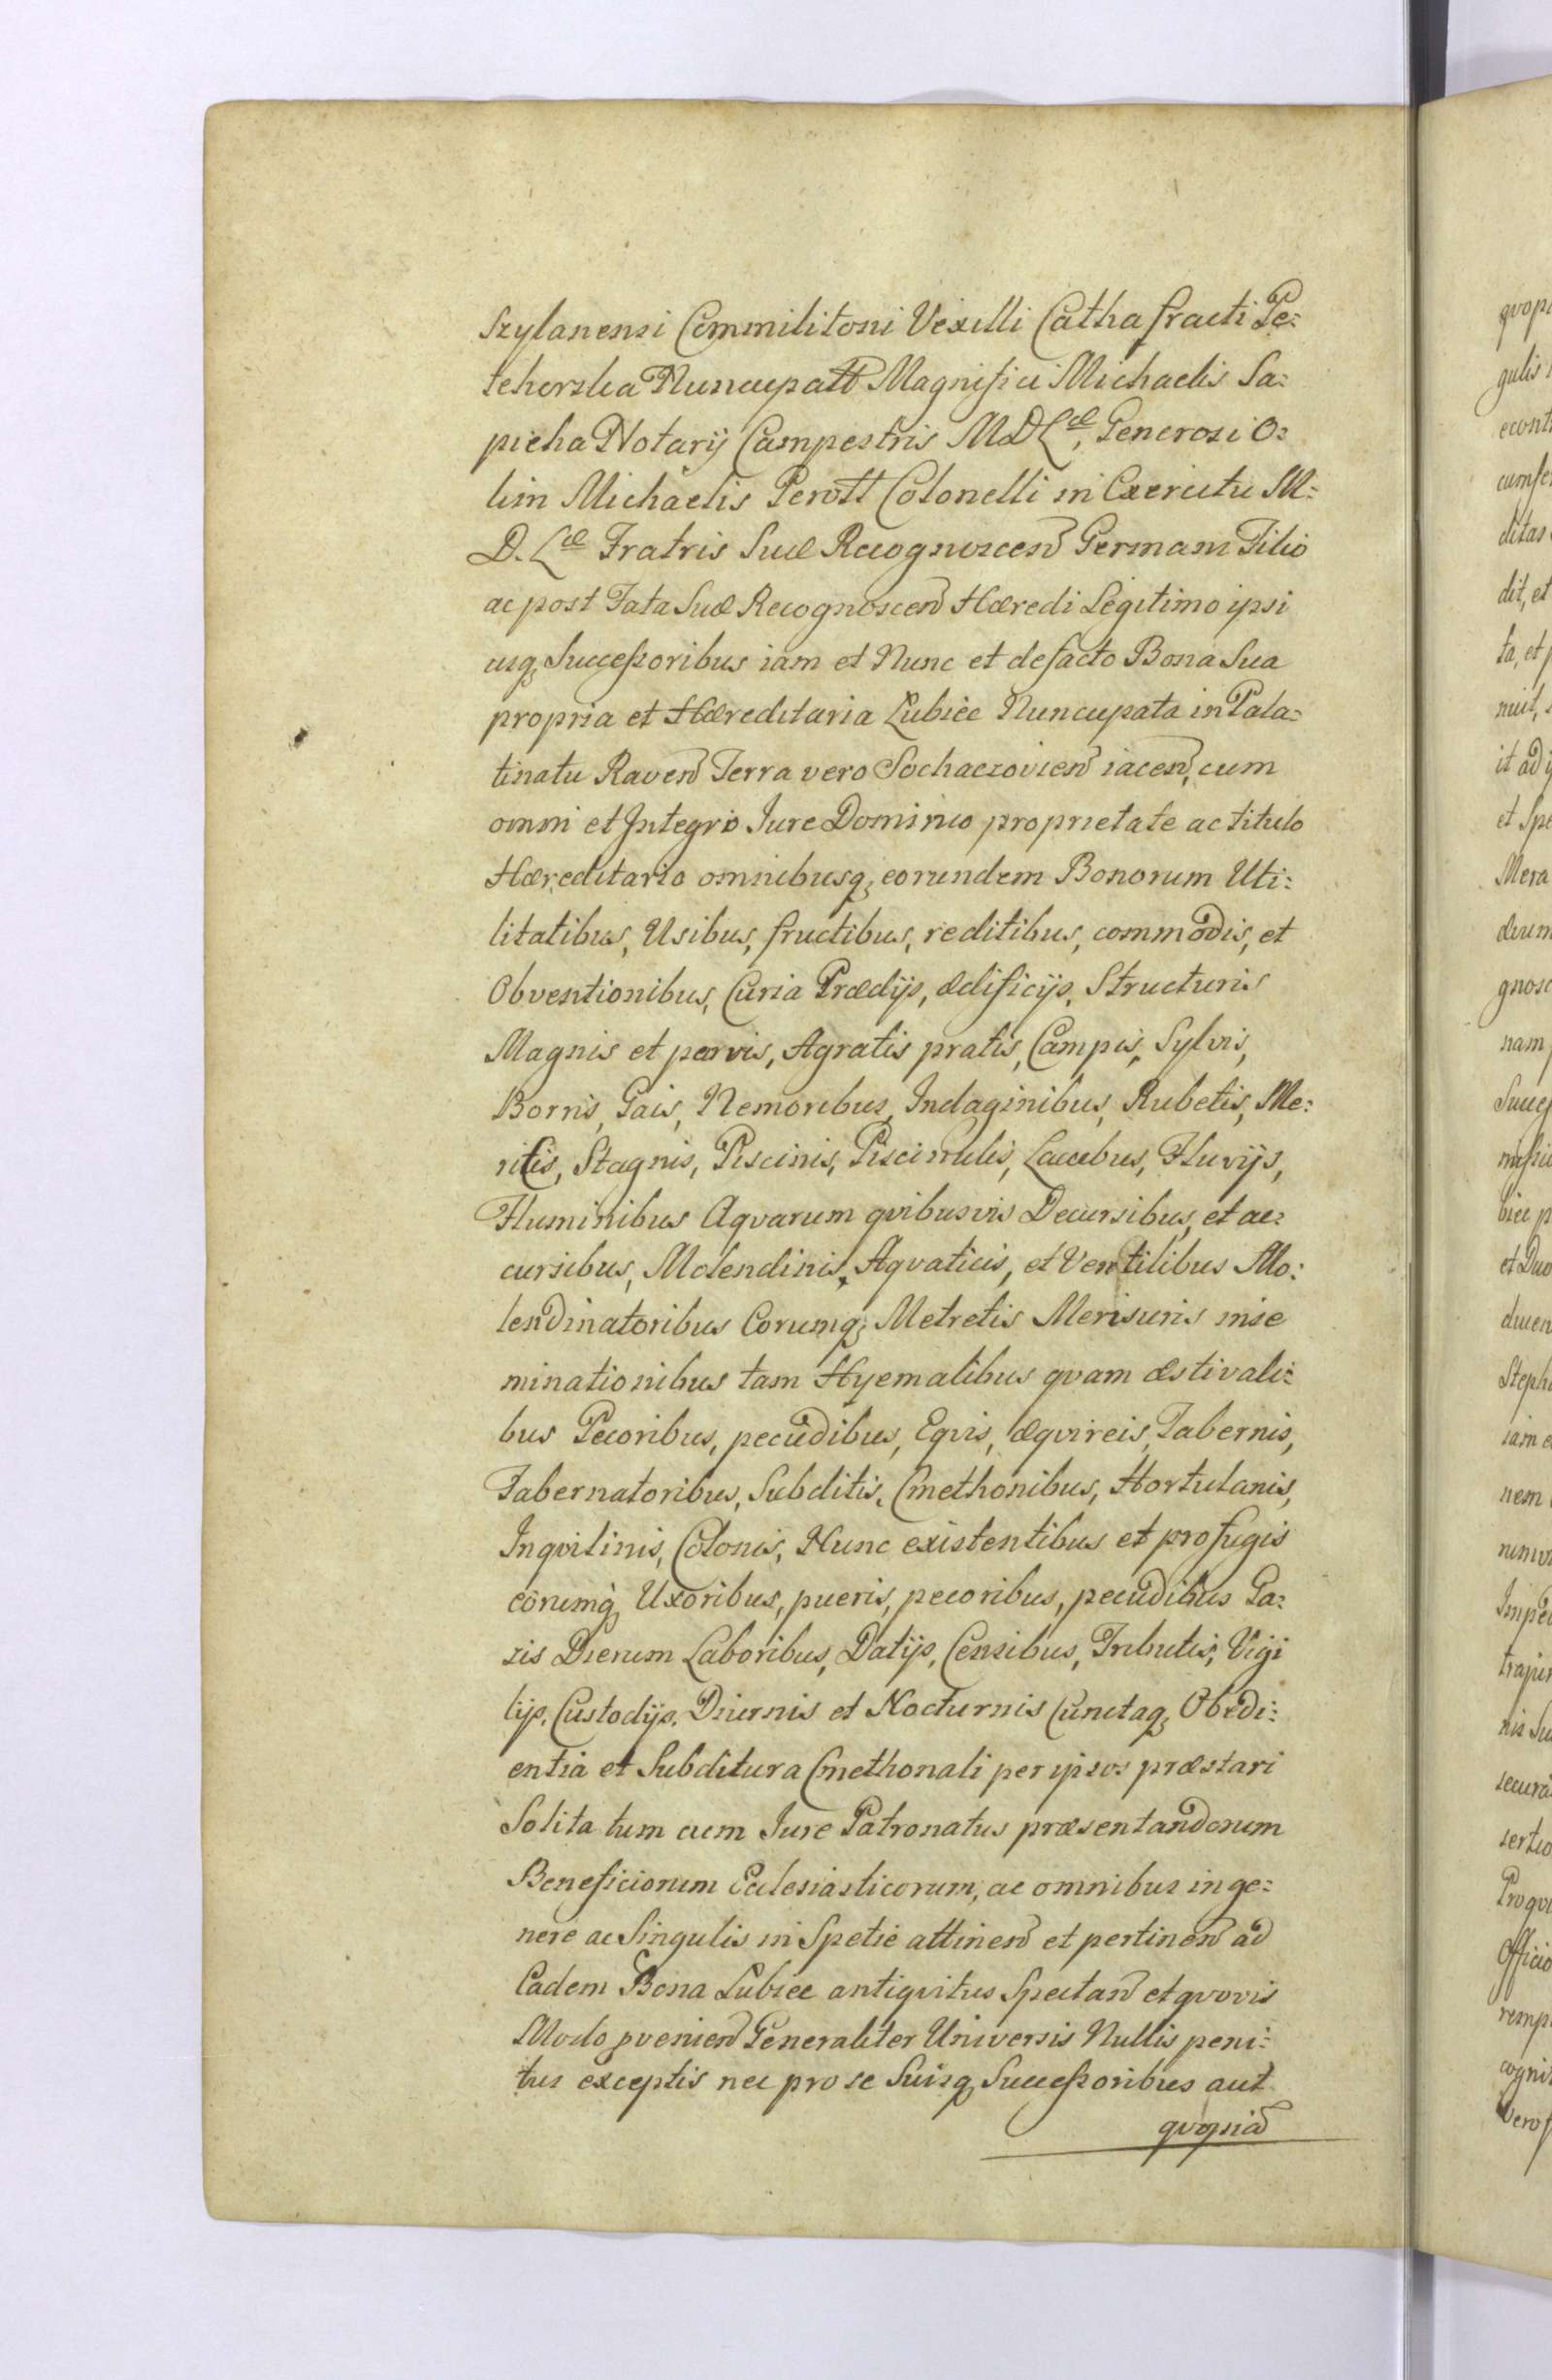 Szylanensi Commilitoni Vexilli Cathafracti Pe:
tehorska Nuncupatt Magnifici Michaelis Sa:
pieha Notarij Campestris M D Lᵃᵉ, Generosi O:
lim Michaelis Perott Colonelli in Exercitu M:
D. Lᵃᵉ Fratris Suæ Recognoscen̄ Germani Filio
ac post Fata Suæ Recognoscen̄ Hæredi Legitimo ipsi
usq; Successoribus iam et Nunc et defacto Bona Sua
propria et Hæreditaria Lubiec Nuncupata in Pala:
tinatu Raven̄ Terra vero Sochaczovien̄ iacen̄, cum
omni et Integro Jure Dominio proprietate ac titulo
Hæreditario omnibusq; eorundem Bonorum Uti:
litatibus, Usibus, fructibus, reditibus, commodis, et
Obventionibus, Curia Prædijs, ædificijs, Structuris
Magnis et parvis, Agratis pratis, Campis, Sylvis,
Borris, Gais, Nemoribus, Indaginibus, Rubetis, Me:
ritis, Stagnis, Piscinis, Piscinulis, Lacubus, Fluvijs,
Fluminibus Aqvarum qvibusvis Decursibus, et ac:
cursibus, Molendinis, Aqvaticis, et Ventilibus Mo:
lendinatoribus Eorumq; Metretis Merisuris inse
minationibus tam Hyemalibus qvam æstivali:
bus Pecoribus, pecudibus, Eqvis, æqvireis, Tabernis,
Tabernatoribus, Subditis, Cmethonibus, Hortulanis,
Inqvilinis, Colonis, Nunc existentibus et profugis
eorumq; Uxoribus, pueris, pecoribus, pecudibus Ga:
zis Dierum Laboribus, Datijs, Censibus, Tributis, Vigi
lijs, Custodijs, Diurnis et Nocturnis Cunctaq; Obedi:
entia et Subditura Cmethonali per ipsos præstari
Solita tum cum Jure Patronatus præsentandorum
Beneficiorum Ecclesiasticorum, ac omnibus in ge:
nere ac Singulis in Spetie attinen̄ et pertinen̄ ad
Eadem Bona Lubiec antiqvitus Spectan̄ et qvovis
Modo pvenien̄ Generaliter Universis Nullis peni:
tus exceptis nec pro se Suisq; Successoribus aut
qvopia̅